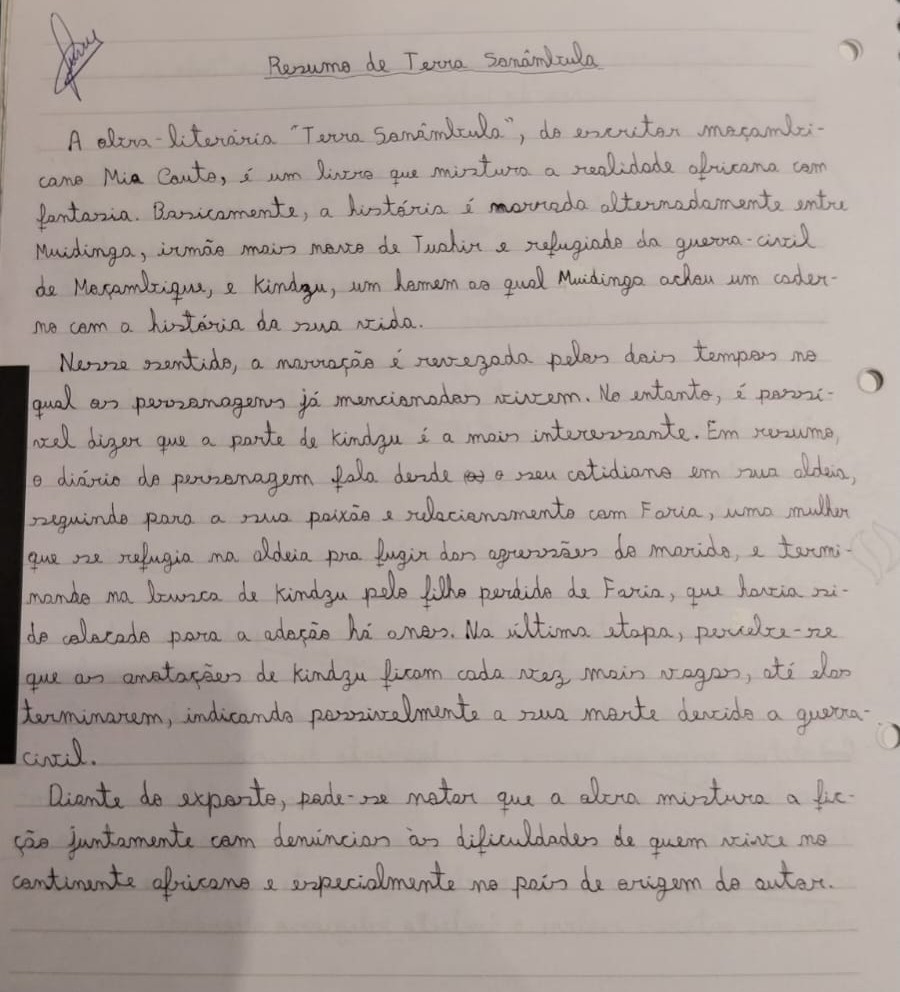 Resumo de Terra Sonâmbula
A obra-literária "Terra Sonâmbula", do escritor moçambi-
cano Mia Couto, é um livro que mistura a realidade africana com
fantasia. Basicamente, a história é narrada alternadamente entre
Muidinga, irmão mais novo de Tuahir e refugiado da guerra-civil
de Moçambique, e Kindzu, um homem ao qual Muidinga achou um cader-
no com a história da sua vida.
Nesse sentido, a narração é revezada pelos dois tempos no
qual os personagens já mencionados vivem. No entanto, é possí-
vel dizer que a parte de Kindzu é a mais interessante. Em resumo,
o diário do personagem fala desde o seu cotidiano em sua aldeia,
seguindo para a sua paixão e relacionamento com Faria, uma mulher
que se refugia na aldeia pra fugir das agressões do marido, e termi-
nando na busca de Kindzu pelo filho perdido de Faria, que havia si-
do colocado para a adoção há anos. Na última etapa, percebe-se
que as anotações de Kindzu ficam cada vez mais vagas, até elas
terminarem, indicando possivelmente a sua morte devido a guerra-
civil.
Diante do exposto, pode-se notar que a obra mistura a fic-
ção juntamente com denúncias às dificuldades de quem vive no
continente africano e especialmente no país de origem do autor.